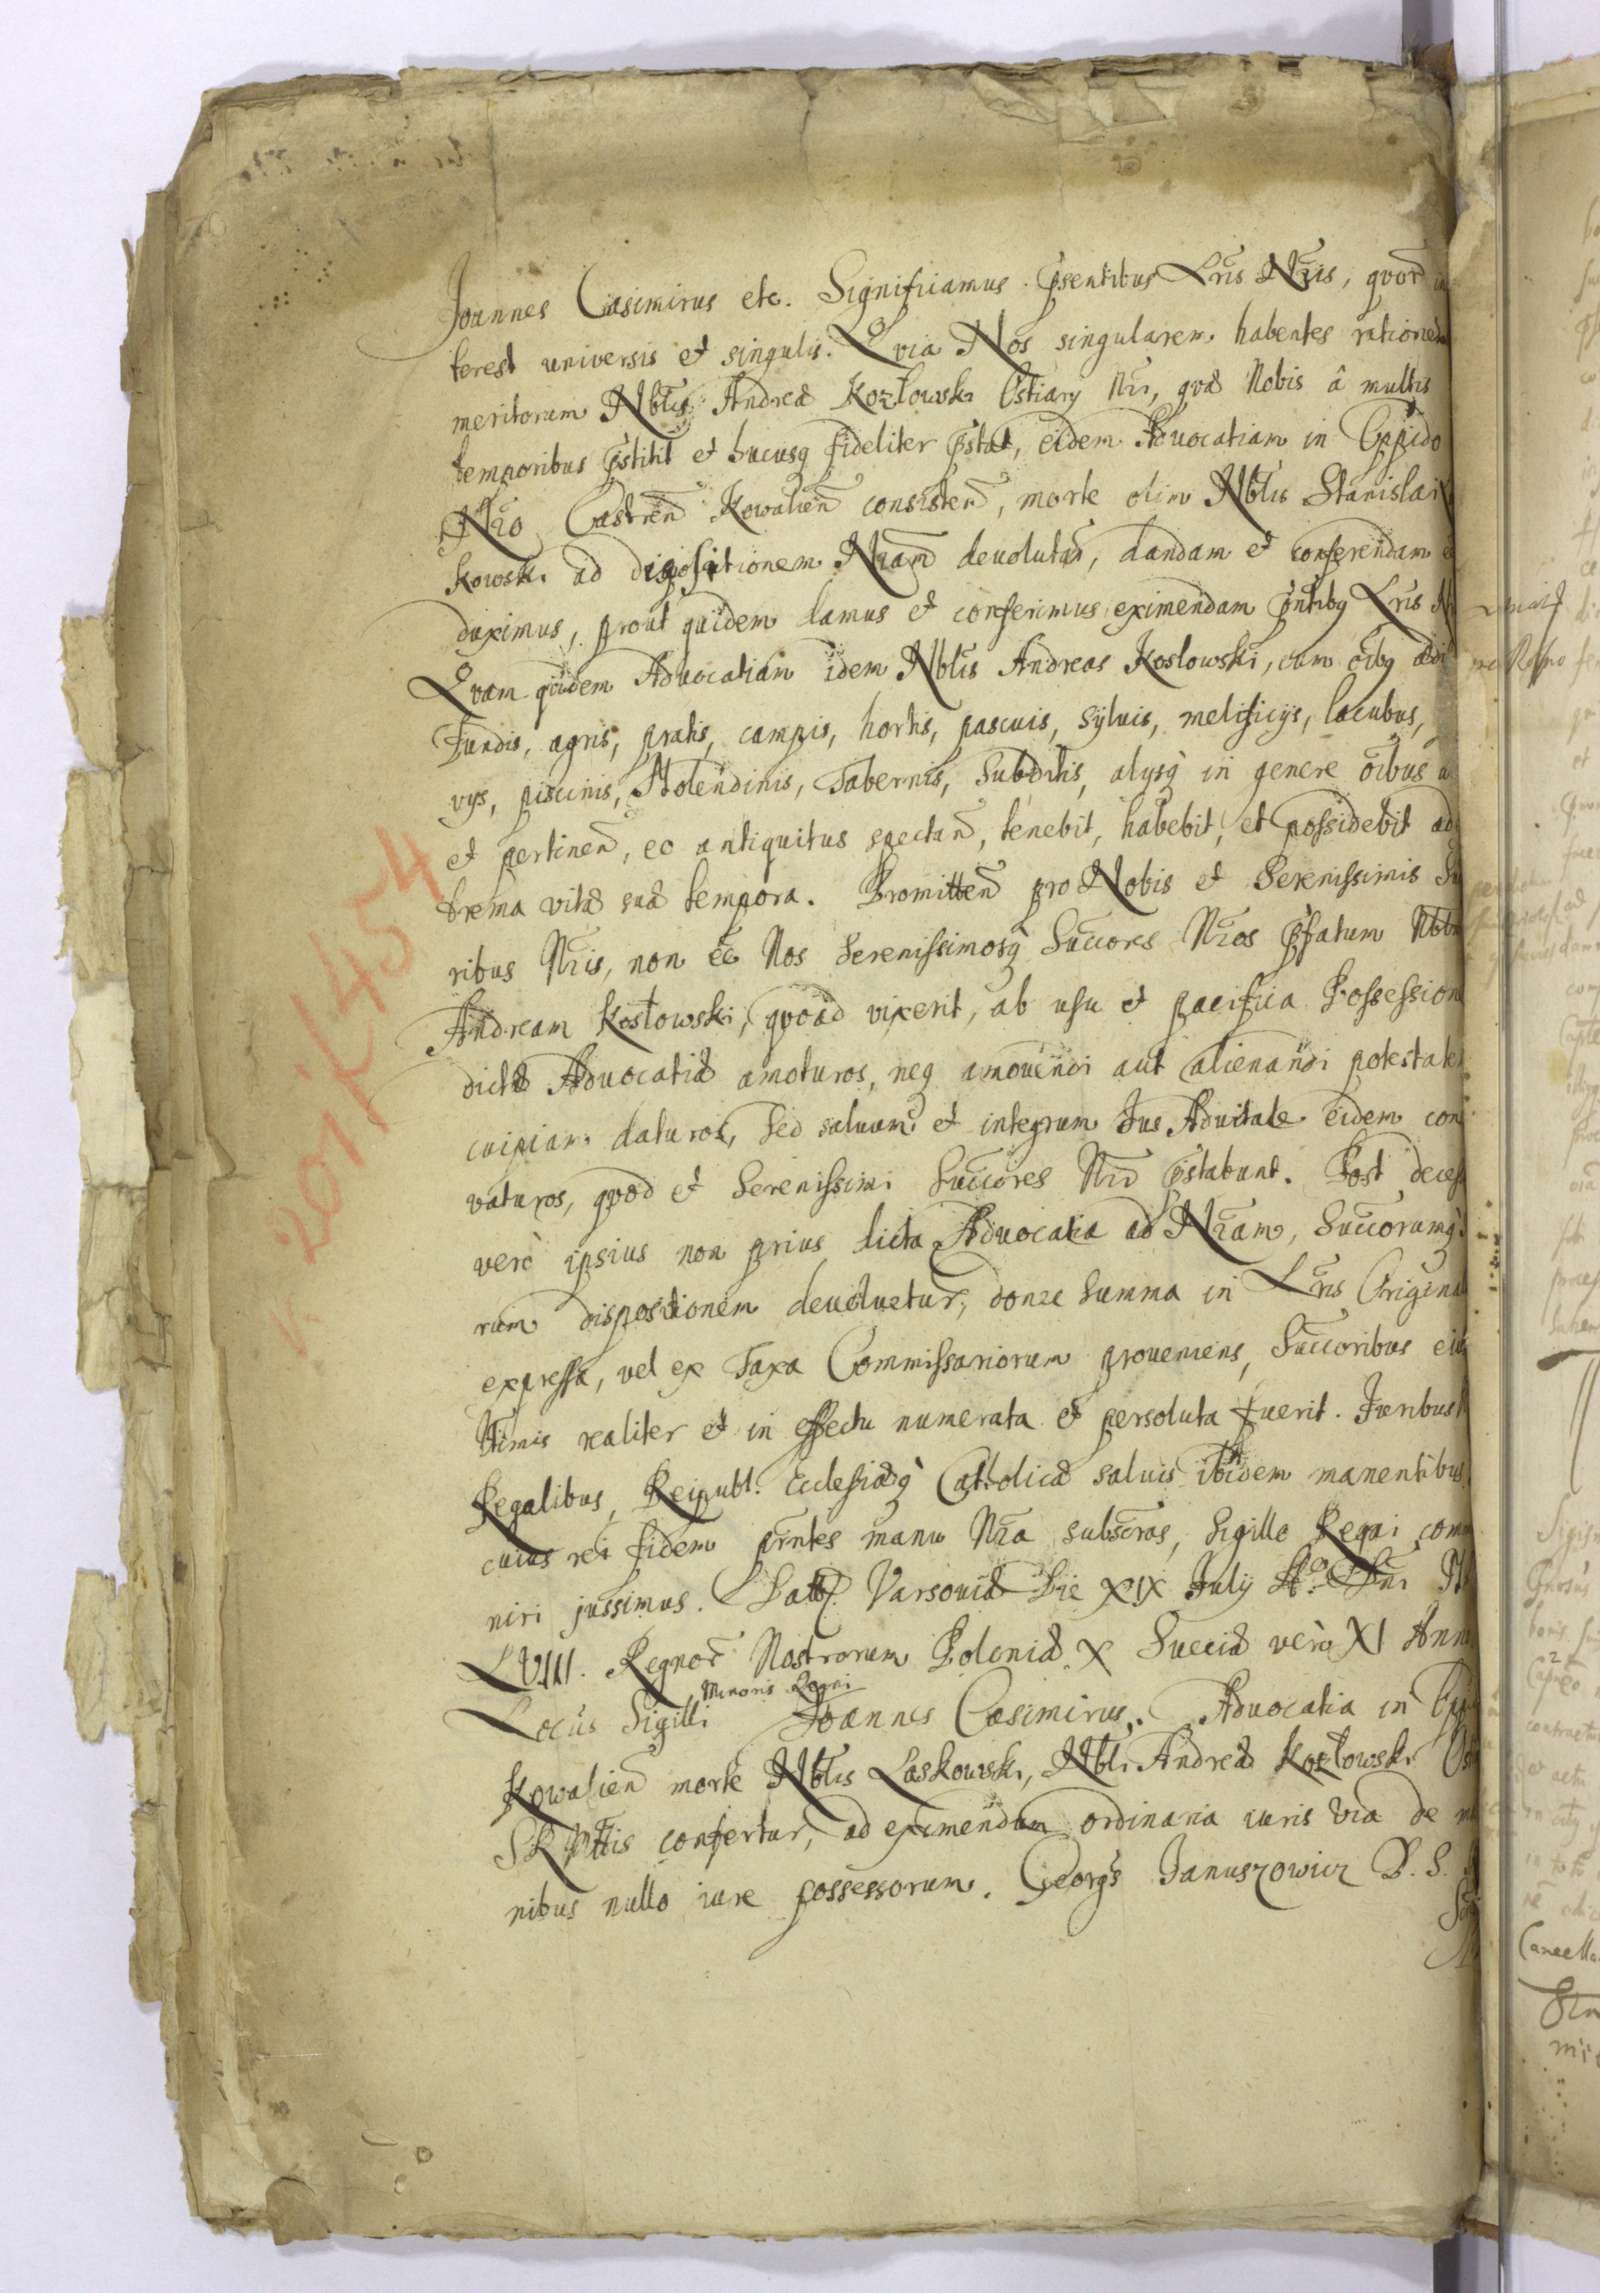 Joannes Casimirus etc. Significamus psentibus Lris Nris, quorũ in
terest universis et singulis. Quia Nos singularem habentes rationem
meritorum Nblis Andreæ Kozłowski Ostiarÿ Nri, quæ Nobis â multis
temporibus pstitit et hucusq fideliter pstat, eidem Advocatiam in Oppido
Nro Castreñ Kowalieñ consisteñ, morte olim Nblis Stanislai
kowski ad dispositionem Nram devolutam, dandam et conferendam e
duximus, prout quidem damus et conferimus eximendam pntibq Lris N
Quam quidem Advocatiam idem Nblis Andreas Koslowski, cum oibq ædi
Fundis, agris, pratis, campis, hortis, pascuis, sÿluis, melificijs, lacubus,
vijs, piscinis, Molendinis, Tabernis, Subditis, alÿsq in genere oibus a
et pertineñ, eo antiquitus spectañ, tenebit, habebit, et possidebit ad
trema vitæ suæ tempora. Promitteñ pro Nobis et Serenissimis Su
ribus Nris, non ee Nos Serenissimosq Succores Nros pfatum Nblm
Andream Kosłowski, quoad vixerit, ab usu et pacifica Possession
dictæ Advocatiæ amoturos, neq amovendi aut alienandi potestate
cuipiam daturos, Sed saluum et integrum Jus Aduitale eidem con
vaturos, quod et Serenissimi Succores Nri pstabunt. Post decess
verò ipsius non prius dicta Advocatia ad Nram, Succorumq
rum dispositionem deuoluetur, donec Summa in Lris Origina
expressa, vel ex Taxa Commissariorum proueniens, Succoribus eiq
timis realiter et in effectu numerata et persoluta fuerit. Juribus
Regalibus, Reipubl. Ecclesiæq Catholicæ saluis ibidem manentibus
cuius rei fidem pntes manu Nra subscras, Sigillo Regni comm
niri jussimus. Dat Varsoviæ Die XIX Julij Ao Dni M
LVIII. Regnorũ Nostrorum Poloniæ X Sueciæ verò XI Anno
Locus Sigilli Minoris Regni Joannes Casimirus. Advocatia in Opp
Kowalieñ morte Nblis Laskowski, Nbli Andreæ Kozłowski Ost
SRMttis confertur, ad eximendum ordinaria iuris via de m
nibus nullo iure possessorum. Georgs Januszowicz
v. 2011/1454